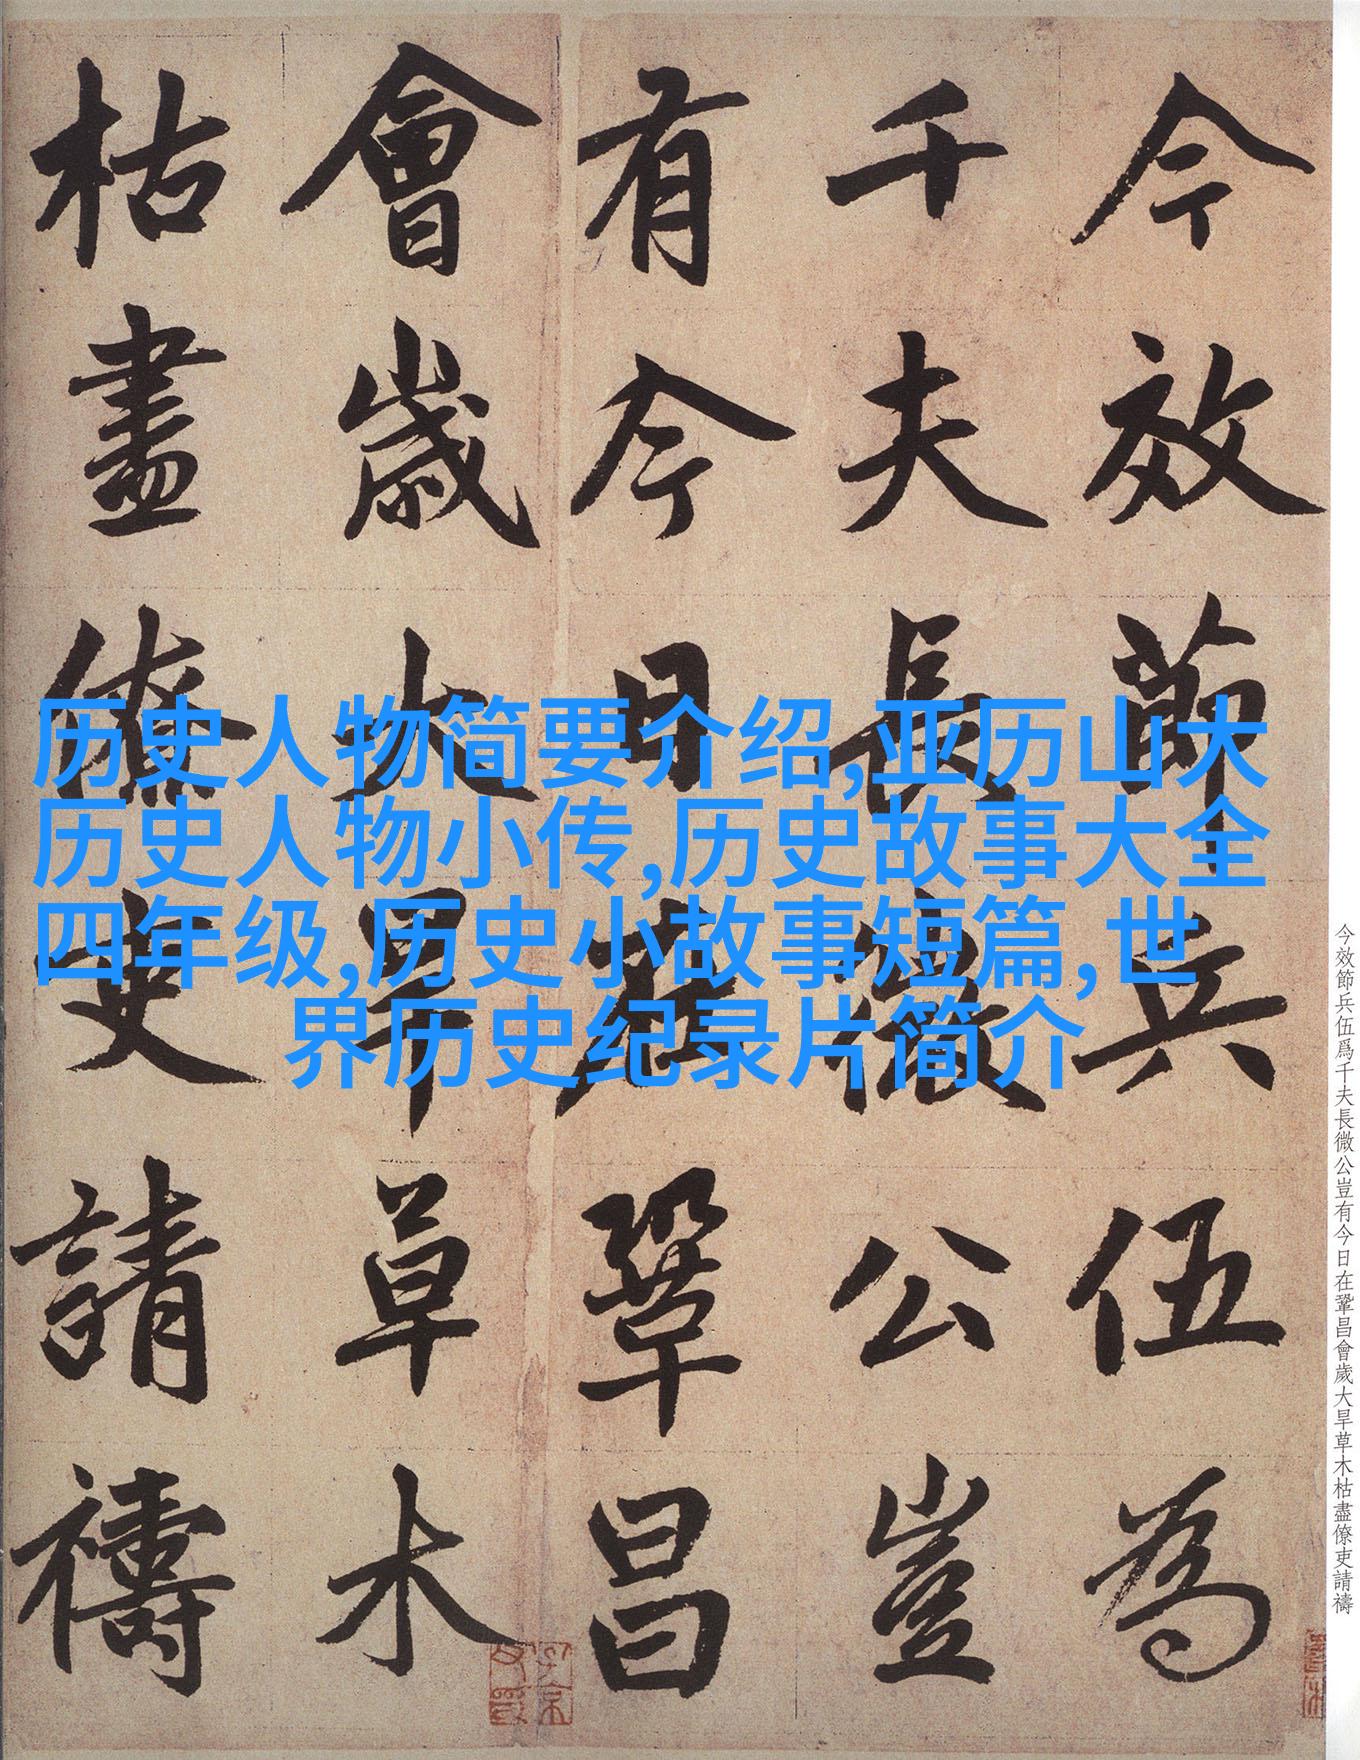 今效節兵伍為
千夫長微公豈
有今日在鞏昌
會歲大旱草木
枯盡僚吏請禱
历史人物简要介绍,亚历山大
历史人物小传,历史故事大全
四年级,历史小故事短篇,世
界历史纪录片简介
今效節兵伍爲千夫長微公豈有今日在鞏昌會歲大旱草木枯盡僚吏請禱